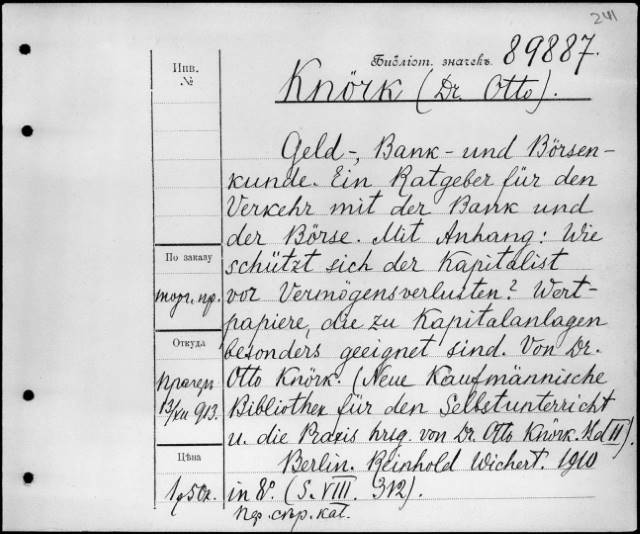 241
Библіот. значекъ 89887.
Инв.
№
Knörk (Dr. Otto).
Geld-, Bank- und Börsen-
kunde. Ein Ratgeber für den
Verkehr mit der Bank und
der Börse. Mit Anhang: Wie
schützt sich der Kapitalist
vor Vermögensverlusten? Wert-
papiere, die zu Kapitalanlagen
besonders geeignet sind. Von Dr.
Otto Knörk. (Neue Kaufmännische
Bibliothek für den Selbstunterricht
u. die Praxis hrsg. von Dr. Otto Knörk. Bd II)
Berlin. Reinhold Wichert. 1910
in 8°. (S. VIII. 312).
По заказу
торг. пр.
Откуда
13/XII 913.
Цѣна
пер. стр. кат.